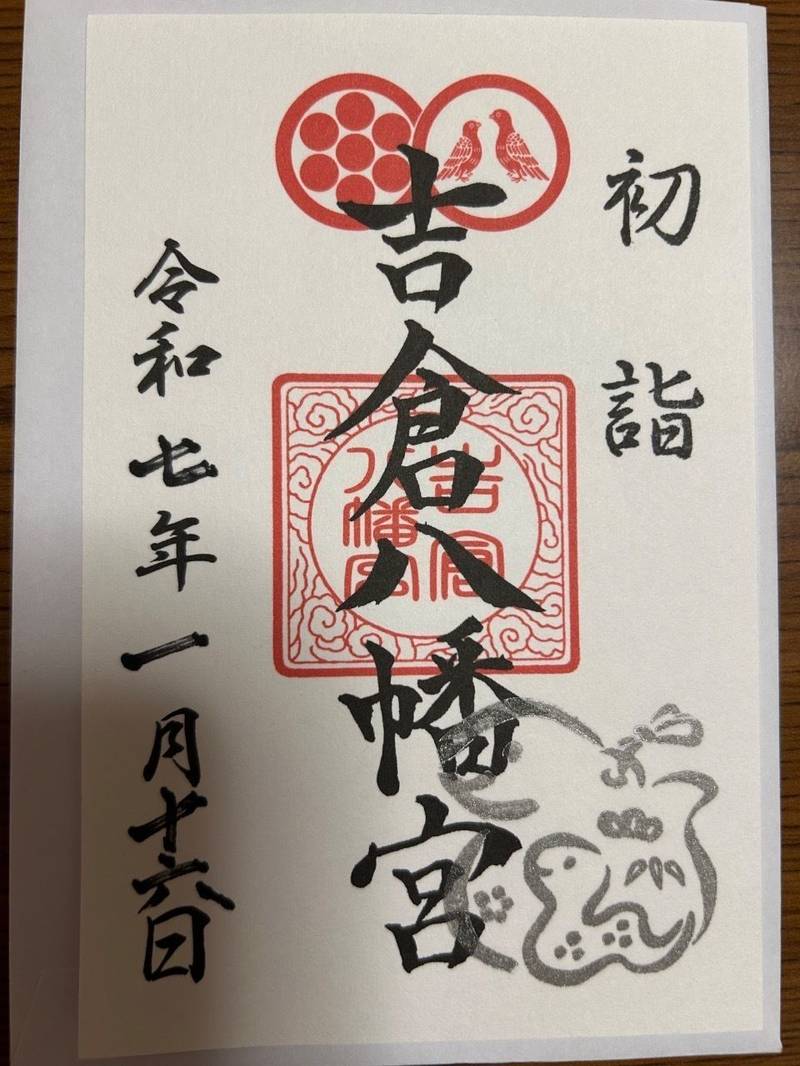 初詣
吉倉八幡宮
吉倉
八幡宮
令和七年一月十六日